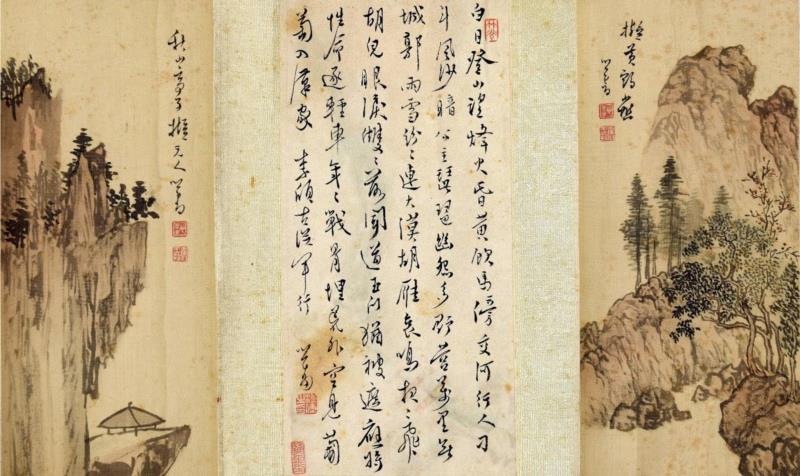 擬黃鶴樵
心畬
白日登山望烽火昏黃飲馬傍交河行人刁
斗風沙暗公主琵琶幽怨多野營萬里無
城郭雨雪紛〻連大漠胡雁哀鳴夜〻飛
胡兒眼淚雙〻落聞道玉門猶被遮應將
性命逐輕車年〻戰骨埋荒外空見葡
萄入漢家 李頎古從軍行 心畬
秋山亭子擬元人心畬